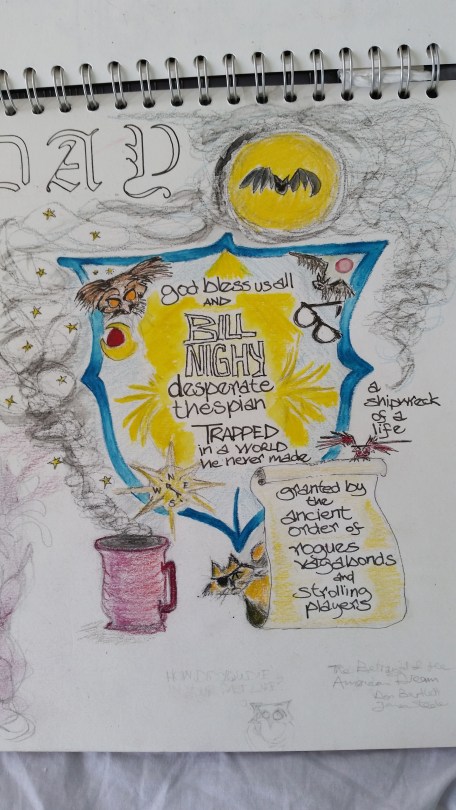 DAY
god bless us all
AND
BILL
NIGHY
desperate
thespian
TRAPPED
in a WORLD
he never made
a
shipwreck
of a
life
N
W E
S
granted by
the
ancient
order of
rogues
vagabonds
and
strolling
players
The Betrayal of the
American Dream